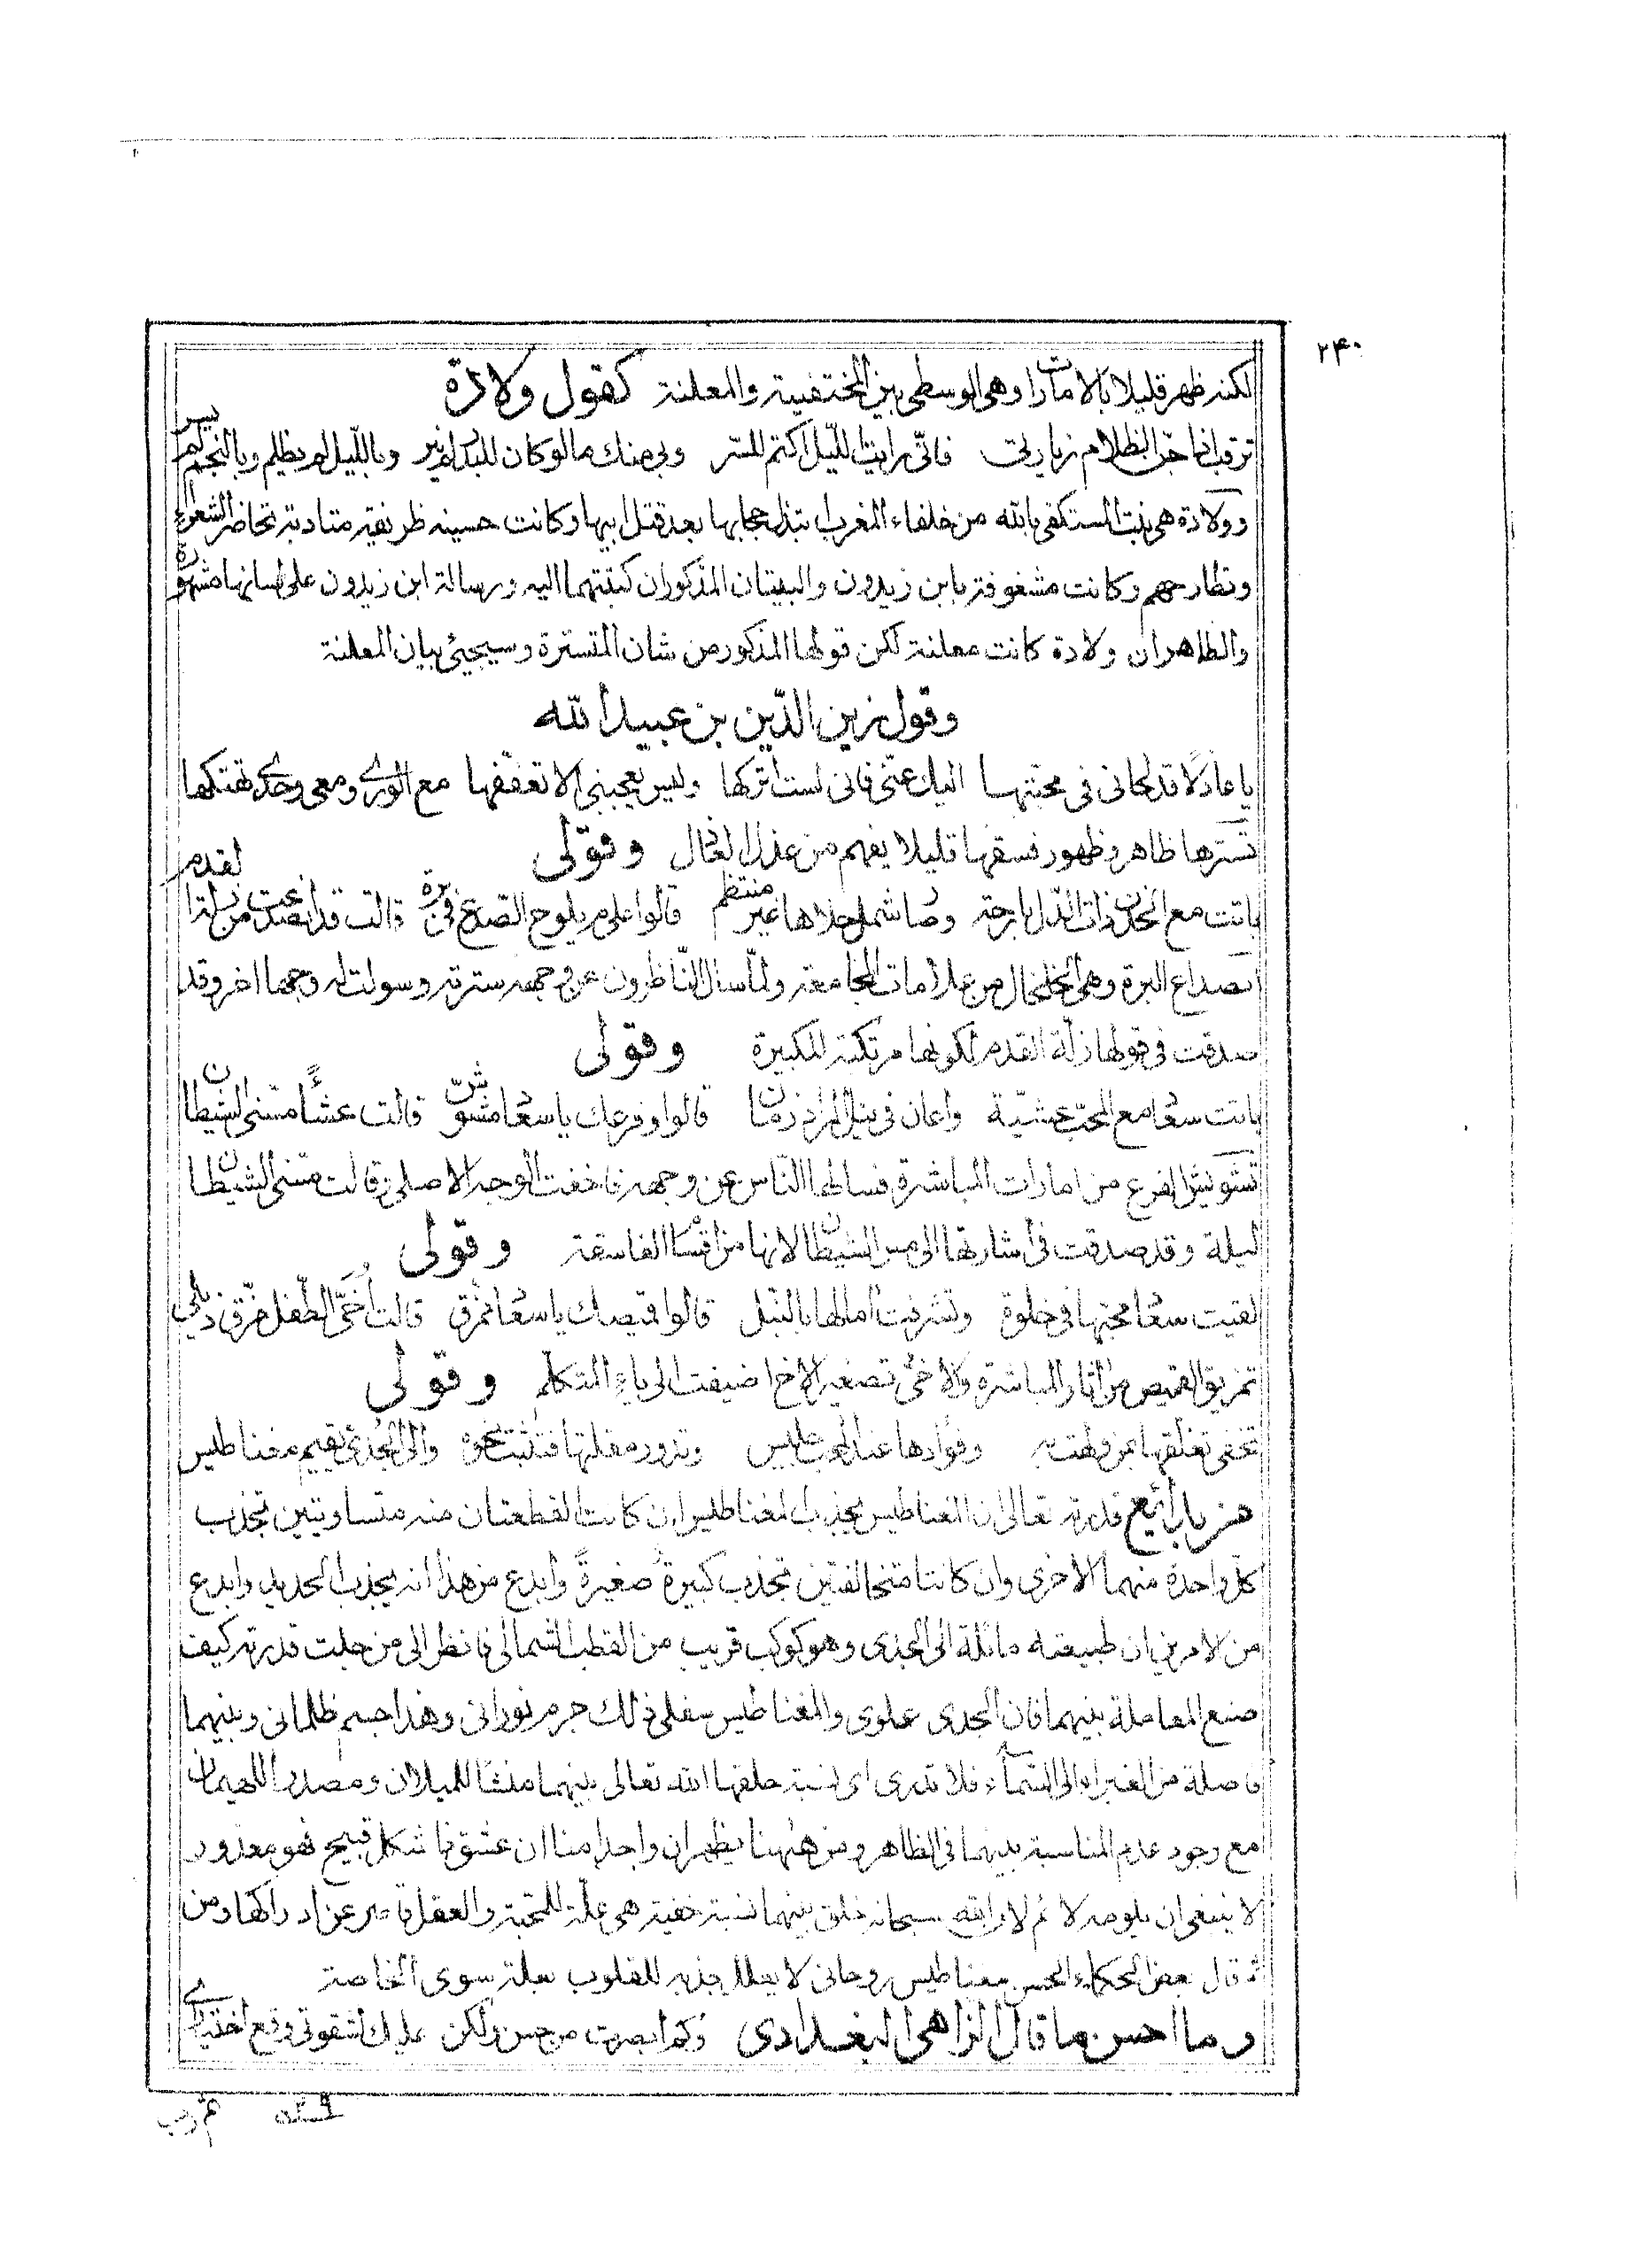 ٢٤٠
لكنه ظهر قليلا بالامارات وهى الوسطى بين المختفية والمعلنة كقول ولادة
ترقب اذا جن الظلام زيارتى فانى رايت الليل اكتم للسر وبى منك ما لو كان للبدر لم ينر وبالليل لم يظلم وبالنجم لم يسر
وولادة هى بنت المستكفى بالله من خلفاء المغرب ابتذل حجابها بعد قتل ابيها وكانت حسينه ظريفة متادبة تحاضر الشعراء
وتطارحهم وكانت مشغوفة بابن زيدون والبيتان المذكوران كتبتهما اليه ورسالة ابن زيدون على لسانها مشهورة
والظاهر ان ولادة كانت معلنة لكن قولها المذكور من شان المتسترة وسيجئ بيان المعلنة
وقول زين الدين بن عبيد الله
يا عاذلا قد لحانى فى محبتها اليك عنى فانى لست اتركها وليس يعجبنى الا تعففها مع الورى ومعى وحدى تهتكها
تسترها ظاهر وظهور فسقها قليلا يفهم من عذل العذال وقولى
باتت مع الخدن ذات الدل بارحة وصار شمل حلاها غير منتظم قالوا علام يلوح الصدع فى برة قالت قد انصدعت من زلة القدم
انصداع البرة وهى الخلخال من علامات المجامعة ولما سال الناظرون عن وجهه سترته وسولت له وجها اخر وقد
صدقت فى قولها زلة القدم لكونها مرتكبة للكبيرة وقولى
باتت سعاد مع المحب عشية واعان فى نيل المرام زمان قالوا وفرعك يا سعاد مشوش قالت عشا مسنى الشيطان
تشويش الفرع من امارات المباشرة فسالها الناس عن وجهه فاخفت الوجه الاصلى وقالت مسنى الشيطان
ليلة وقد صدقت فى اشارتها الى مس الشيطان لانها من اقسام الفاسقة وقولى
لقيت سعاد محبها فى خلوة وتشرفت امالها بالنيل قالوا قميصك يا سعاد تمزق قالت اخى الطفل مزق ذيلى
تمزيق القميص من اثار المباشرة والاخى تصغير الاخ اضيفت الى ياء المتكلم وقولى
تخفى تعلقها بمن ولهت به وفؤادها عند الحبيب جليس وتدور مقلتها فتثبت نحوه والى الجدى يقيم مغناطيس
من بدائع قدرته تعالى ان المغناطيس يجذب المغناطيس ان كانت القطعتان منه متساويتين تجذب
كل واحدة منهما الاخرى وان كانتا متخالفتين تجذب كبيرة صغيرة وابدع من هذا انه يجذب الحديد وابدع
من الامرين ان طبيعته مائلة الى الجدى وهو كوكب قريب من القطب الشمالى فانظر الى من جلت قدرته كيف
صنع المعاملة بينهما فان الجدى علوى والمغناطيس سفلى ذلك جرم نورانى وهذا جسم ظلمانى وبينهما
فاصلة من الغبراء الى السماء فلا تدرى اى نسبة خلقها الله تعالى بينهما منشا للميلان ومصدرا للهيمان
مع وجود عدم المناسبة بينهما فى الظاهر ومن ههنا يظهر ان واحدا منا ان عشق ذا شكل قبيح فهو معذور
لا ينبغى ان يلومه لائم لان الله سبحانه خلق بينهما نسبة خفية هى علة للمحبة والعقل قاصر عن ادراكها ومن
ثم قال بعض الحكماء الحسن مغناطيس روحانى لا يعلل جذبه للقلوب بعلة سوى الخاصة
وما احسن ما قال الزاهى البغدادى وكم ابصرت من حسن ولكن عليك لشقوتى وقع اختيارى